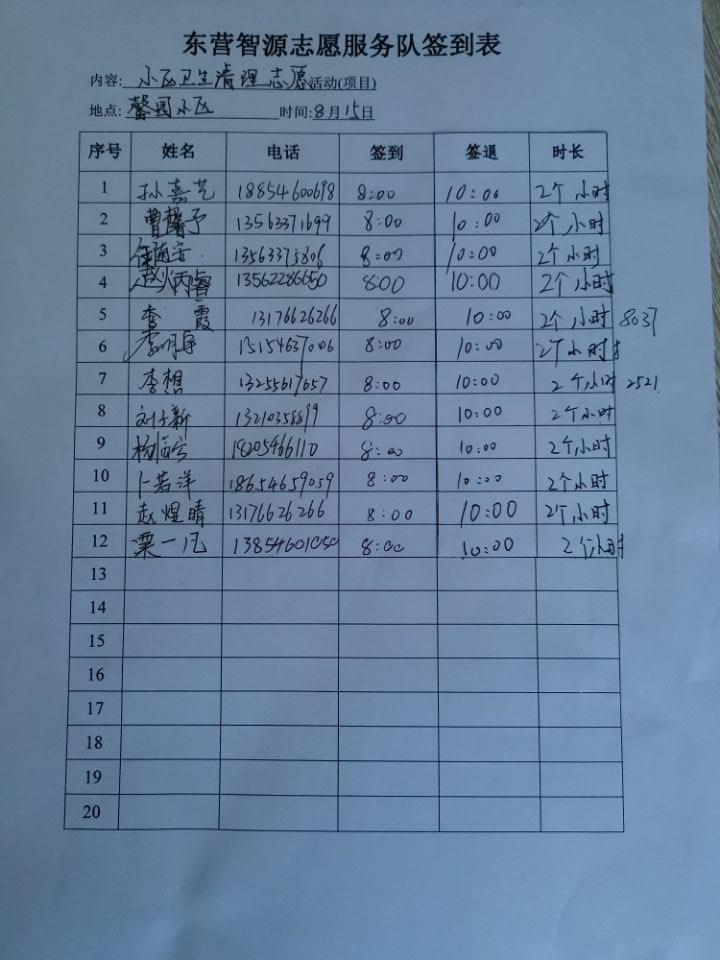 东营智源志愿服务队签到表
内容: 小区卫生清理志愿活动(项目)
地点: 馨园小区 时间:8月15日
序号 姓名 电话 签到 签退 时长
1 孙嘉艺 18854600698 8:00 10:00 2个小时
2 曹馨予 13563371699 8:00 10:00 2个小时
3 8:00 10:00 2个小时
4 赵火丙睿 13562286650 8:00 10:00 2个小时
5 李霞 13176626266 8:00 10:00 2个小时 8037
6 15154637006 8:00 10:00 2个小时
7 李想 13255617657 8:00 10:00 2个小时 2521
8 13210358899 8:00 10:00 2个小时
9 18205466110 8:00 10:00 2个小时
10 卜若洋 18654659059 8:00 10:00 2个小时
11 赵煜晴 13176626266 8:00 10:00 2个小时
12 栗一凡 13854601050 8:00 10:00 2个小时
13
14
15
16
17
18
19
20